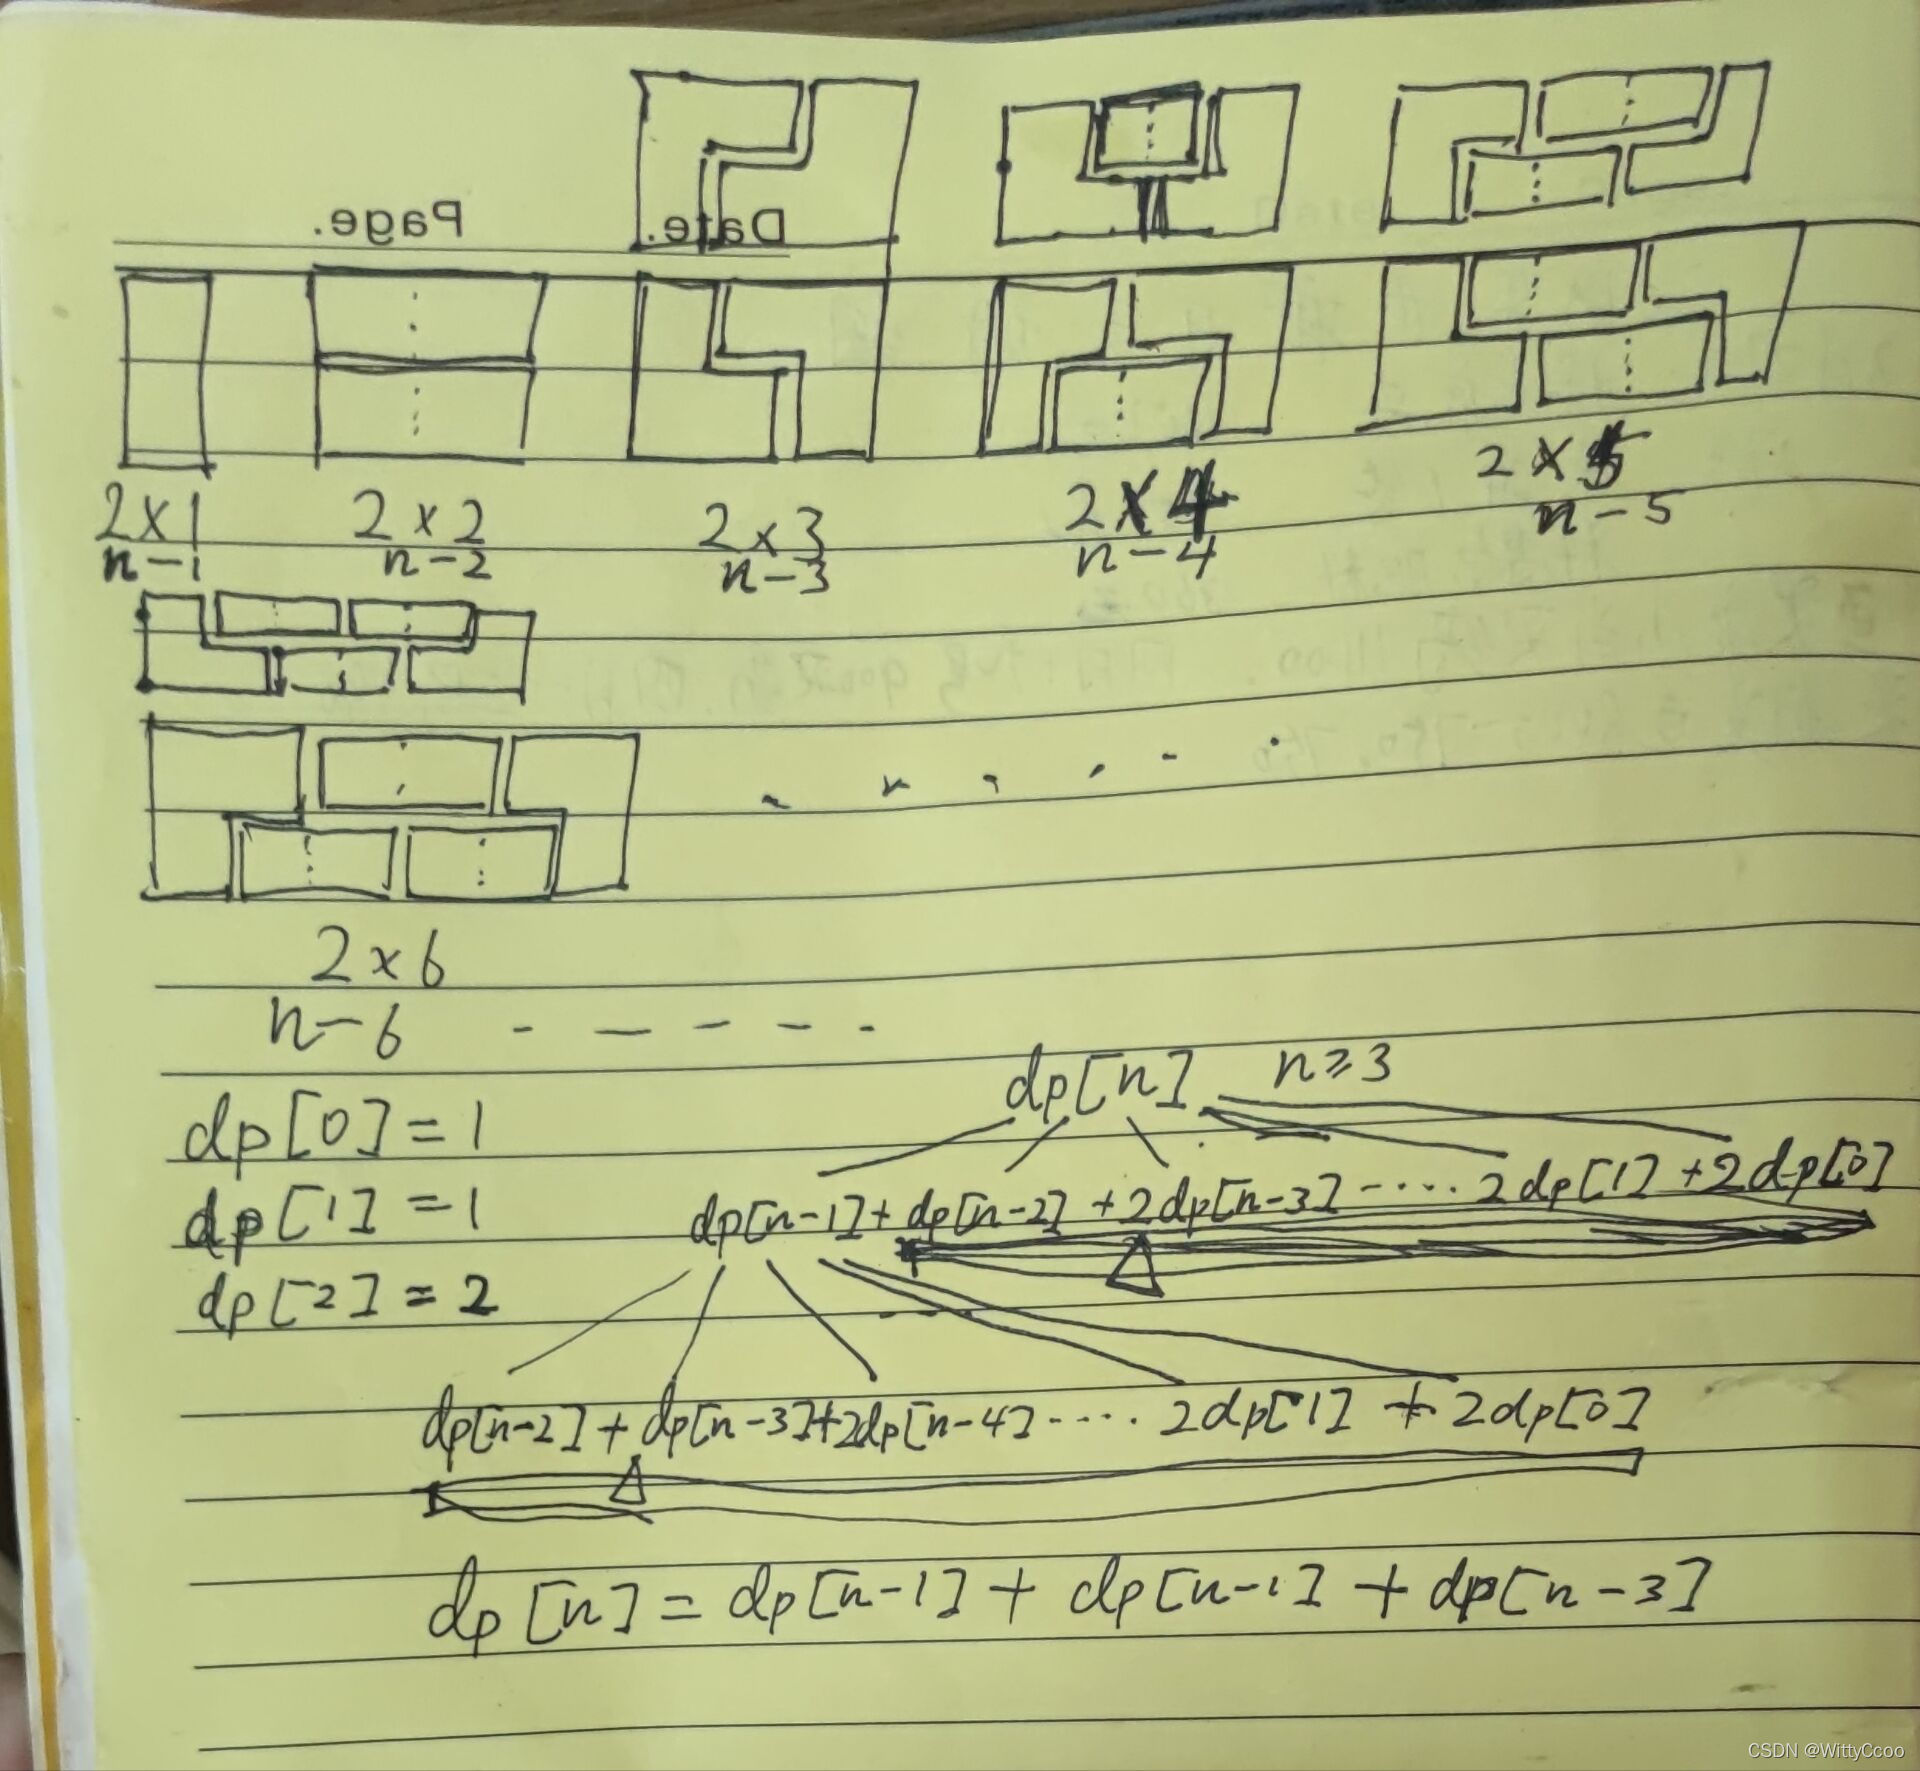 Page.
Date.
2×1 2×2 2×3 2×4 2×5
n-1 n-2 n-3 n-4 n-5
2×6
n-6 - - - - -
dp[n] n≥3
dp[0]=1
dp[n-1]+dp[n-2]+2dp[n-3]-····2dp[1]+2dp[0]
dp[1]=1
dp[2]=2
dp[n-2]+dp[n-3]+2dp[n-4]-····2dp[1]+2dp[0]
dp[n]=dp[n-1]+dp[n-1]+dp[n-3]
CSDN @WittyCcoo